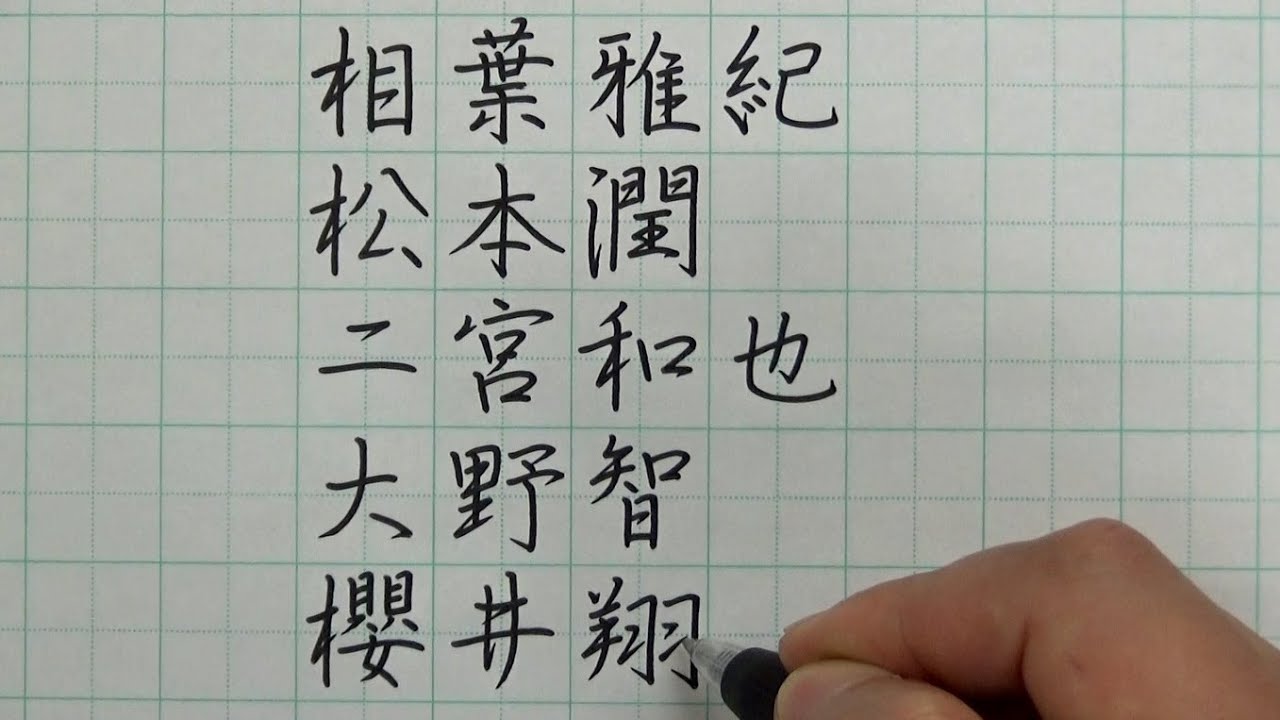 相葉雅紀
松本潤
二宮和也
大野智
櫻井翔